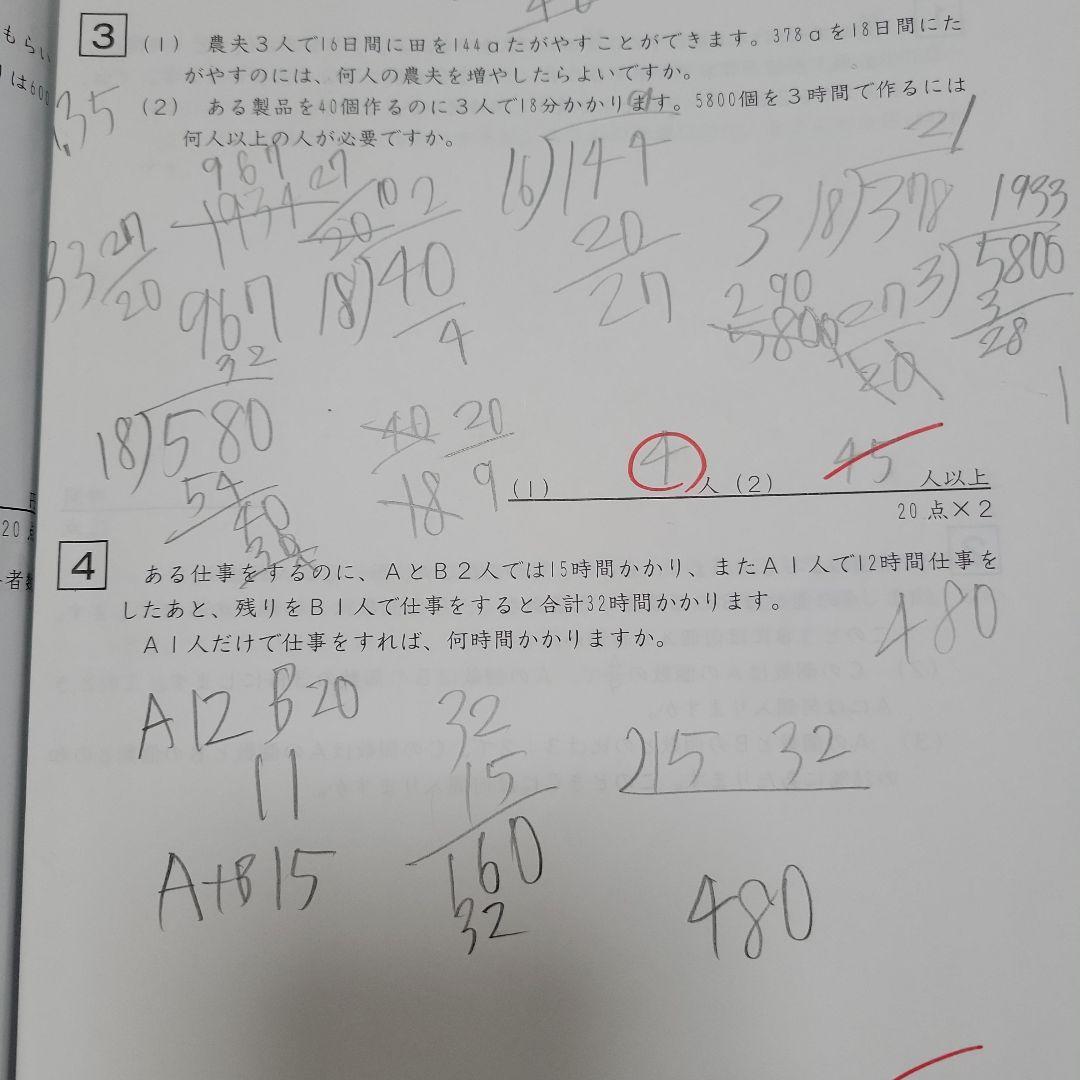 もらい
りは600
3
(1) 農夫3人で16日間に田を144aたがやすことができます。378aを18日間にた
がやすのには、何人の農夫を増やしたらよいですか。
(2) ある製品を40個作るのに3人で18分かかります。5800個を3時間で作るには
何人以上の人が必要ですか。
35
967
1934
27
20
10
2
18)40
4
16)144
20
27
21
3 18)378
1933
3)5800
3
28
33 27
20
967
2 90
5800
27
20
32
18)580
54
40
36
40
18
20
9
(1) 4 人 (2) 45 人以上
20点×2
20点
者数
4
ある仕事をするのに、AとB2人では15時間かかり、またA1人で12時間仕事を
したあと、残りをB1人で仕事をすると合計32時間かかります。
A1人だけで仕事をすれば、何時間かかりますか。
480
A12 B20
11
A+B15
32
15
160
32
215 32
480